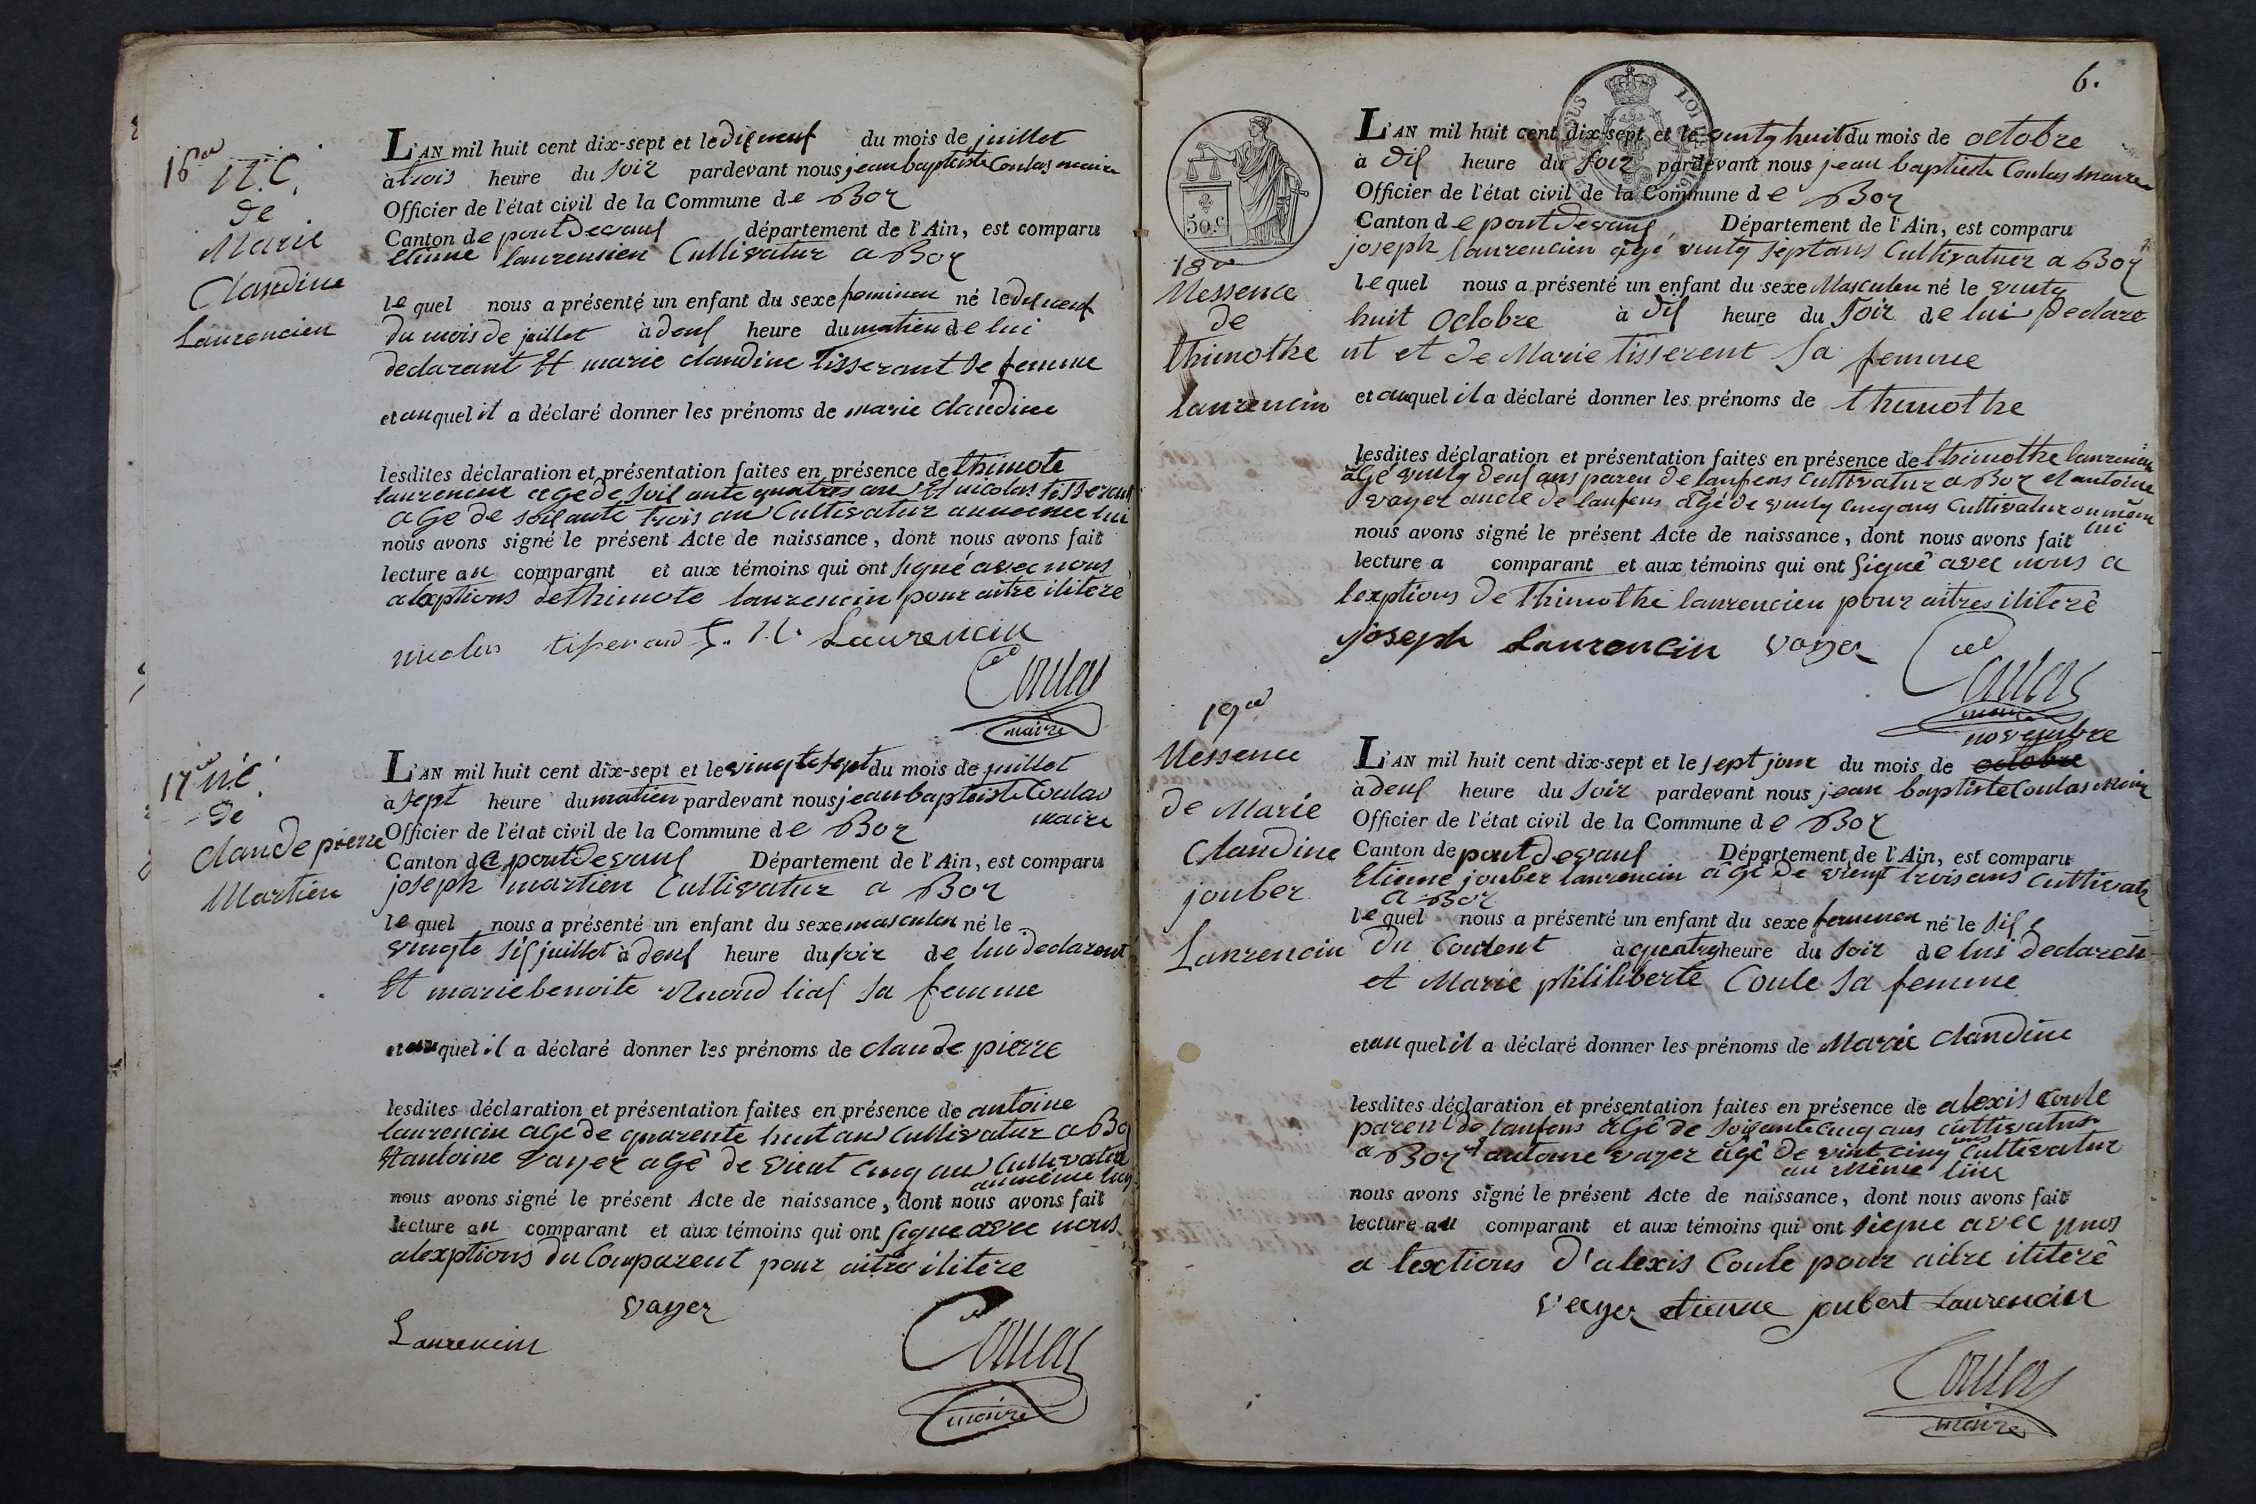 16
N.C.
de
Marie
Claudine
Laurencien
L'AN mil huit cent dix-sept et le dixneuf du mois de juillet
à trois heure du soir pardevant nous jean baptiste Coulas maire
Officier de l'état civil de la Commune de Boz
Canton de pont de vaux département de l'Ain, est comparu
etienne laurensien Cultivatur a Boz
lequel nous a présenté un enfant du sexe feminen né le dixneuf
du mois de juillet à deux heure du matien de lui
declarant Et marie claudine tisserant se femme
et auquel il a déclaré donner les prénoms de marie claudine
lesdites déclaration et présentation faites en présence de thimote
laurencin age de soix ante quatres an Et nicolas tisserant
age de soixante trois an Cultivatur aumeme lui
nous avons signé le présent Acte de naissance, dont nous avons fait
lecture au comparant et aux témoins qui ont signé avec nous
alexptions de thimote laurencin pour aitre ilitere
nicolas tisserand Laurencin
Coulas
maire
17 N.C.
de
claude pierre
Martien
L'AN mil huit cent dix-sept et le vingte sept du mois de juillet
à sept heure du matien pardevant nous jean baptiste Coulas
maire
Officier de l'état civil de la Commune de Boz
Canton de pont de vaux Département de l'Ain, est comparu
joseph martien Cultivatur a Boz
lequel nous a présenté un enfant du sexe masculen né le
vingte six juillet à deux heure du soir de lui declarent
Et marie benoite sa femme
et auquel il a déclaré donner les prénoms de claude pierre
lesdites déclaration et présentation faites en présence de antoine
laurencin age de quarente huit an Cultivatur a Boz
Et antoine vayer agê de vient cinq an Cultivatur
au même luy
nous avons signé le présent Acte de naissance, dont nous avons fait
lecture au comparant et aux témoins qui ont signe avec nous
alexptions du Comparent pour aitre ilitere
vayer
Laurencin
Coulas
maire
6.
50.C.
18
Nessence
de
thimothe
laurencin
L'AN mil huit cent dix-sept et le vintg huit du mois de octobre
à dix heure du soir pardevant nous jean baptiste Coulas maire
Officier de l'état civil de la Commune de Boz
Canton de pont de vaux Département de l'Ain, est comparu
joseph laurencin âgé vintg sept ans Cultivatuer a Boz
lequel nous a présenté un enfant du sexe Masculen né le vintg
huit Octobre à dix heure du soir de lui declare
nt et de Marie tisserent sa femme
et auquel il a déclaré donner les prénoms de thimothe
lesdites déclaration et présentation faites en présence de thimothe laurencin
âgé vintg deux ans paren de lanfens Cultivatur a Boz et antoine
vayer oncle de lanfens âgé de vintg cinq ans Cultivatur au mêm
lui
nous avons signé le présent Acte de naissance, dont nous avons fait
lecture a comparant et aux témoins qui ont signé avec nous a
lexptions de thimothe laurencien pour aitres iliterê
joseph Laurencin vayer
Coulas
maire
19
Nessence
de Marie
Claudine
jouber
Laurencin
novembre
L'AN mil huit cent dix-sept et le sept jour du mois de octobre
à deux heure du soir pardevant nous jean baptiste Coulas Maire
Officier de l'état civil de la Commune de Boz
Canton de pont de vaux Département de l'Ain, est comparu
Etienne jouber laurencin âgé de vient trois ans Cultivatr
a Boz
lequel nous a présenté un enfant du sexe femenen né le six
du Courent à quatre heure du soir de lui declaren
et Marie philiberte Coule sa femme
et auquel il a déclaré donner les prénoms de Marie Claudine
lesdites déclaration et présentation faites en présence de alexis Coule
parent de lanfens âGé de soixante cinq ans cultivatur
a Boz et antoine vayer âgê de vint cinq ans Cultivatur
au Même lieu
nous avons signé le présent Acte de naissance, dont nous avons fait
lecture au comparant et aux témoins qui ont signe avec nous
a lextions d'alexis Coule pour aitre ilitere
vayer etienne joubert Laurencin
Coulas
maire